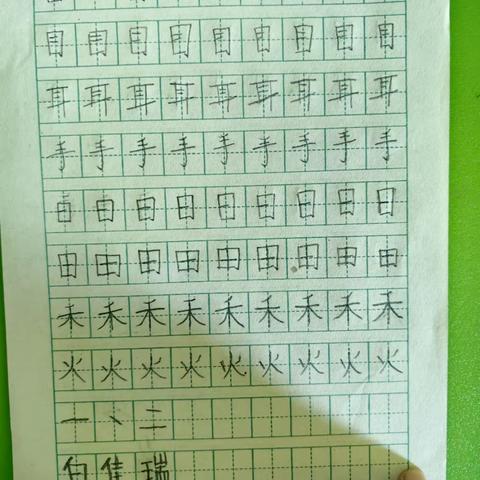 目目目目目目目目目
耳耳耳耳耳耳耳耳耳
手手手手手手手手手
日日日日日日日日日
田田田田田田田田田
禾禾禾禾禾禾禾禾禾
火火火火火火火火火
一丶二
佳瑞